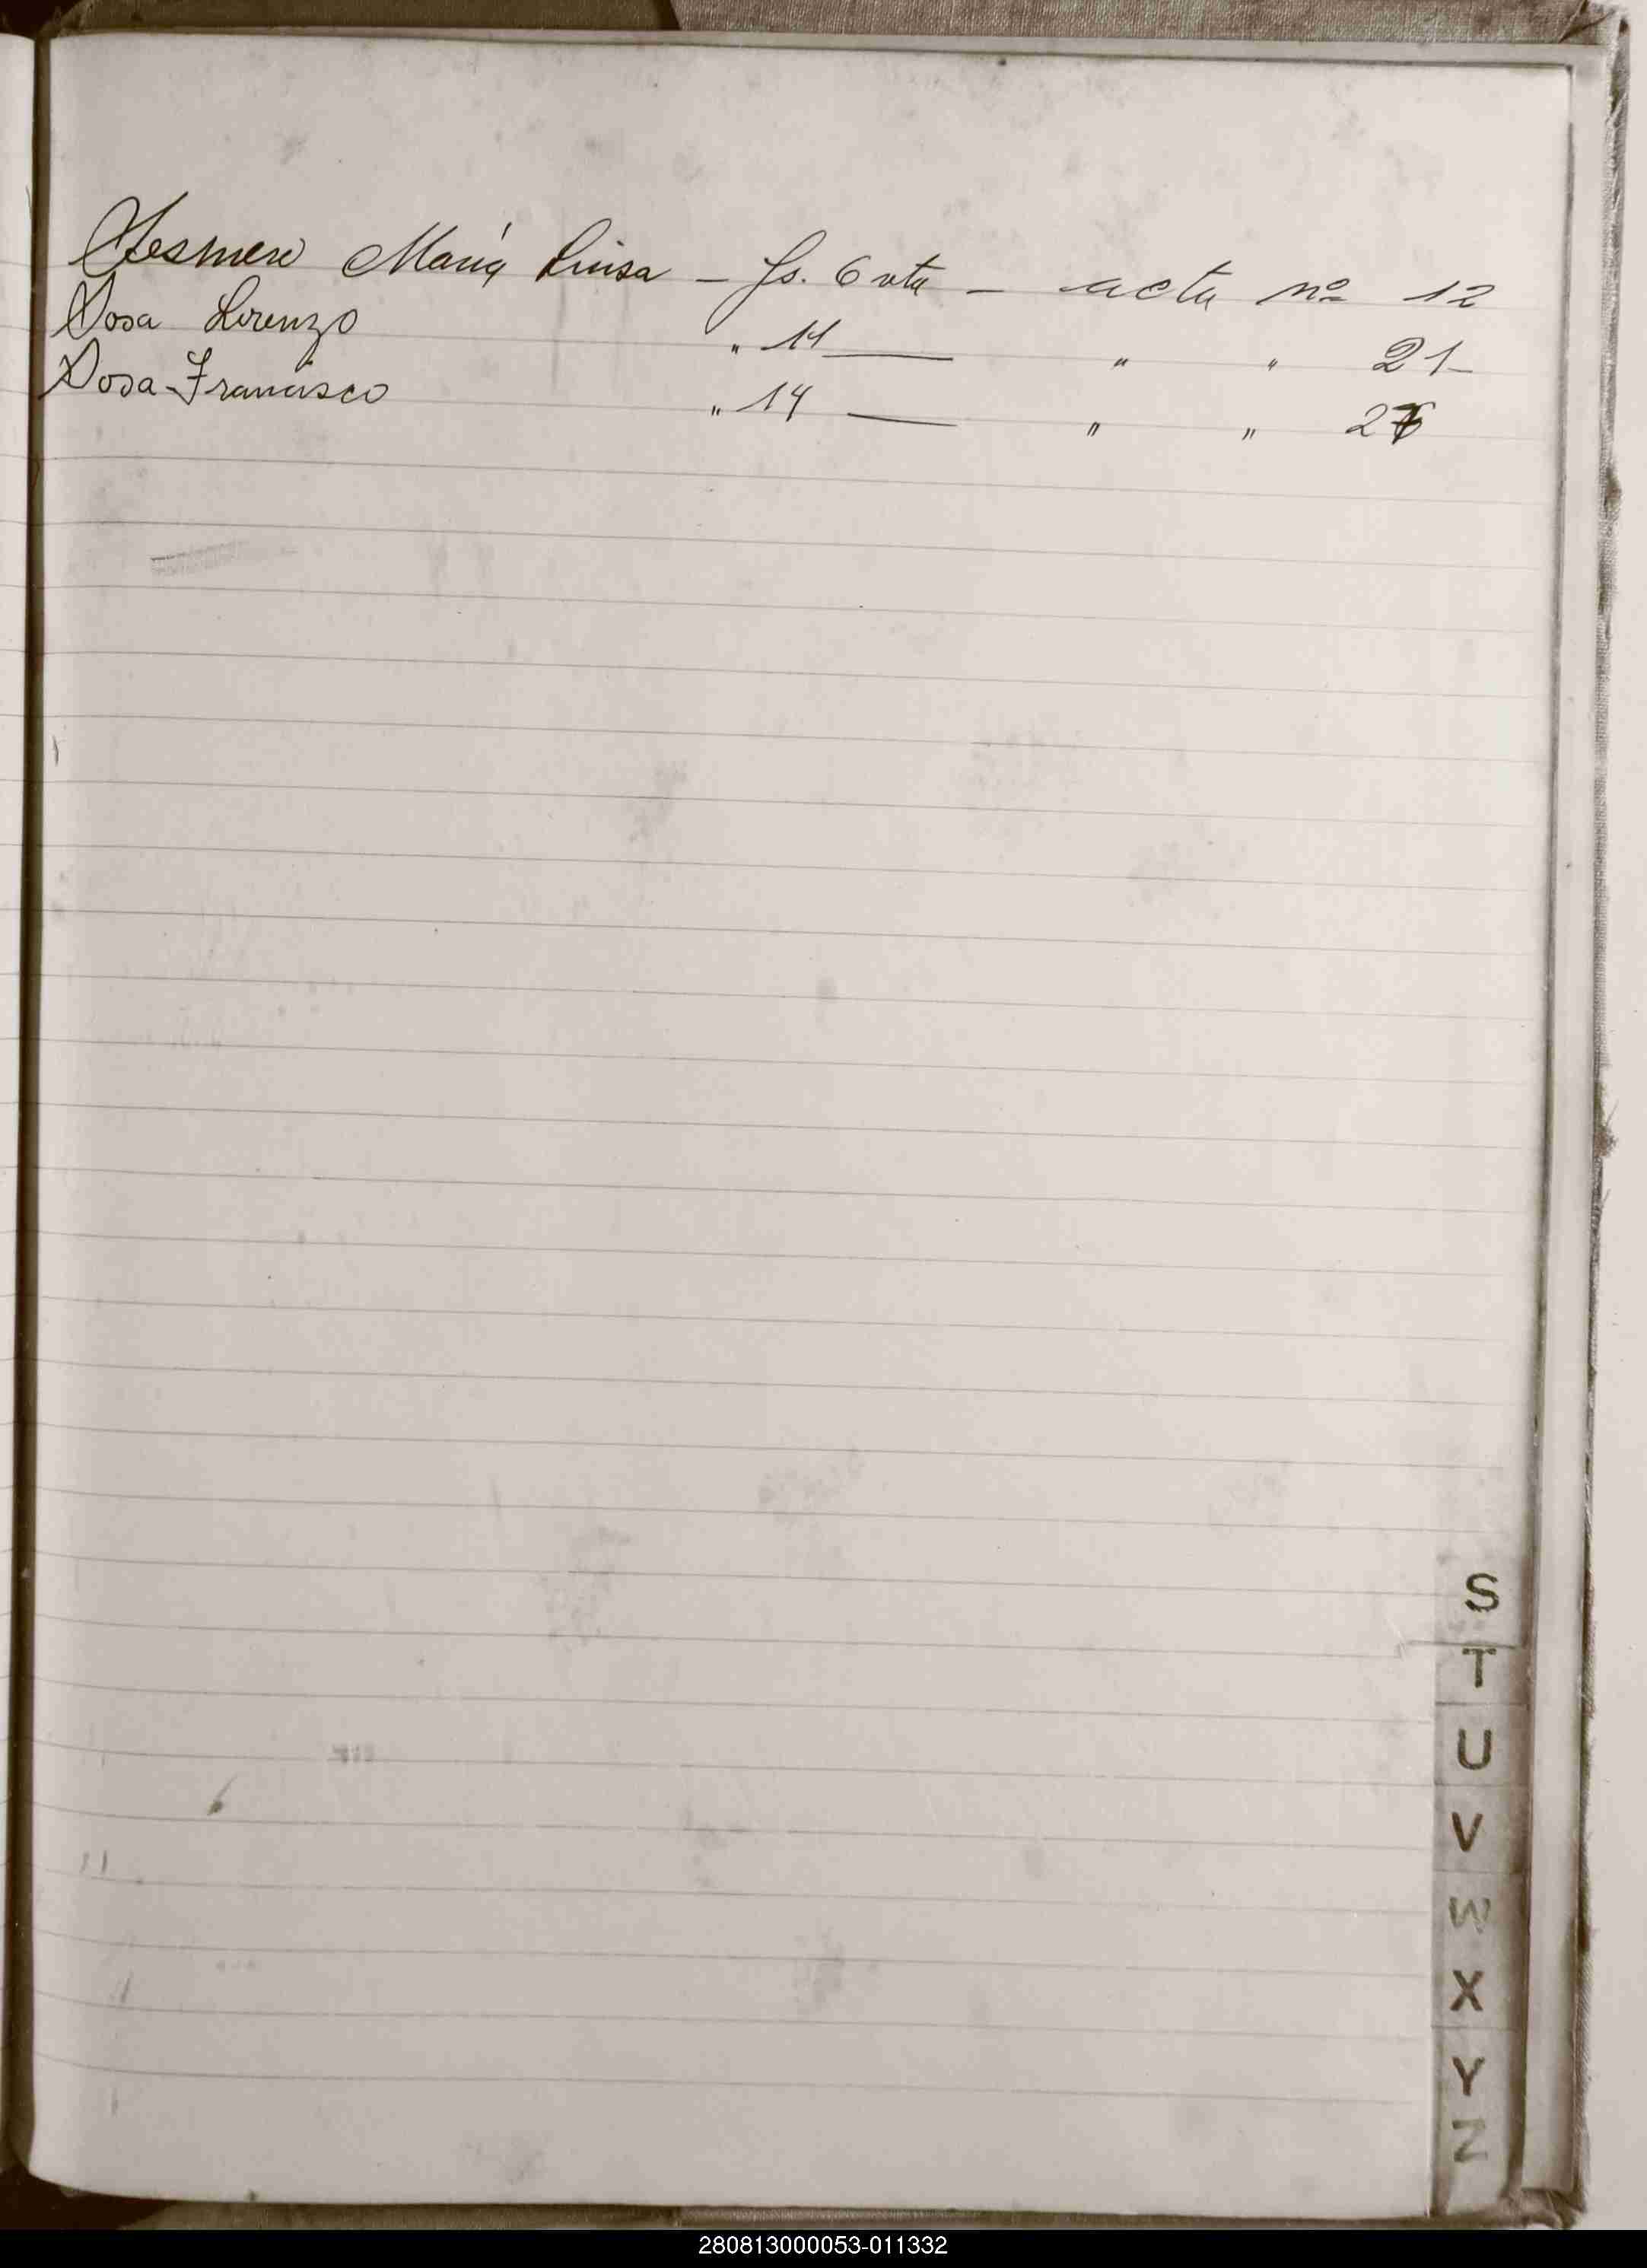 María Luisa - fs. 6 vta - acta nº 12
Sosa Lorenzo " 11 — " " 21-
Sosa Francisco " 14 — " "
S
T
U
V
W
X
Y
Z
280813000053-011332